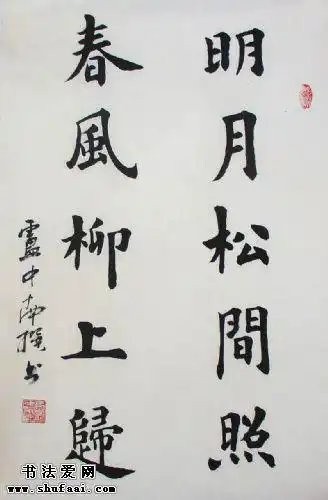 明月松間照
春風柳上歸
盧中南撰书
书法爱网
www.shufaai.com